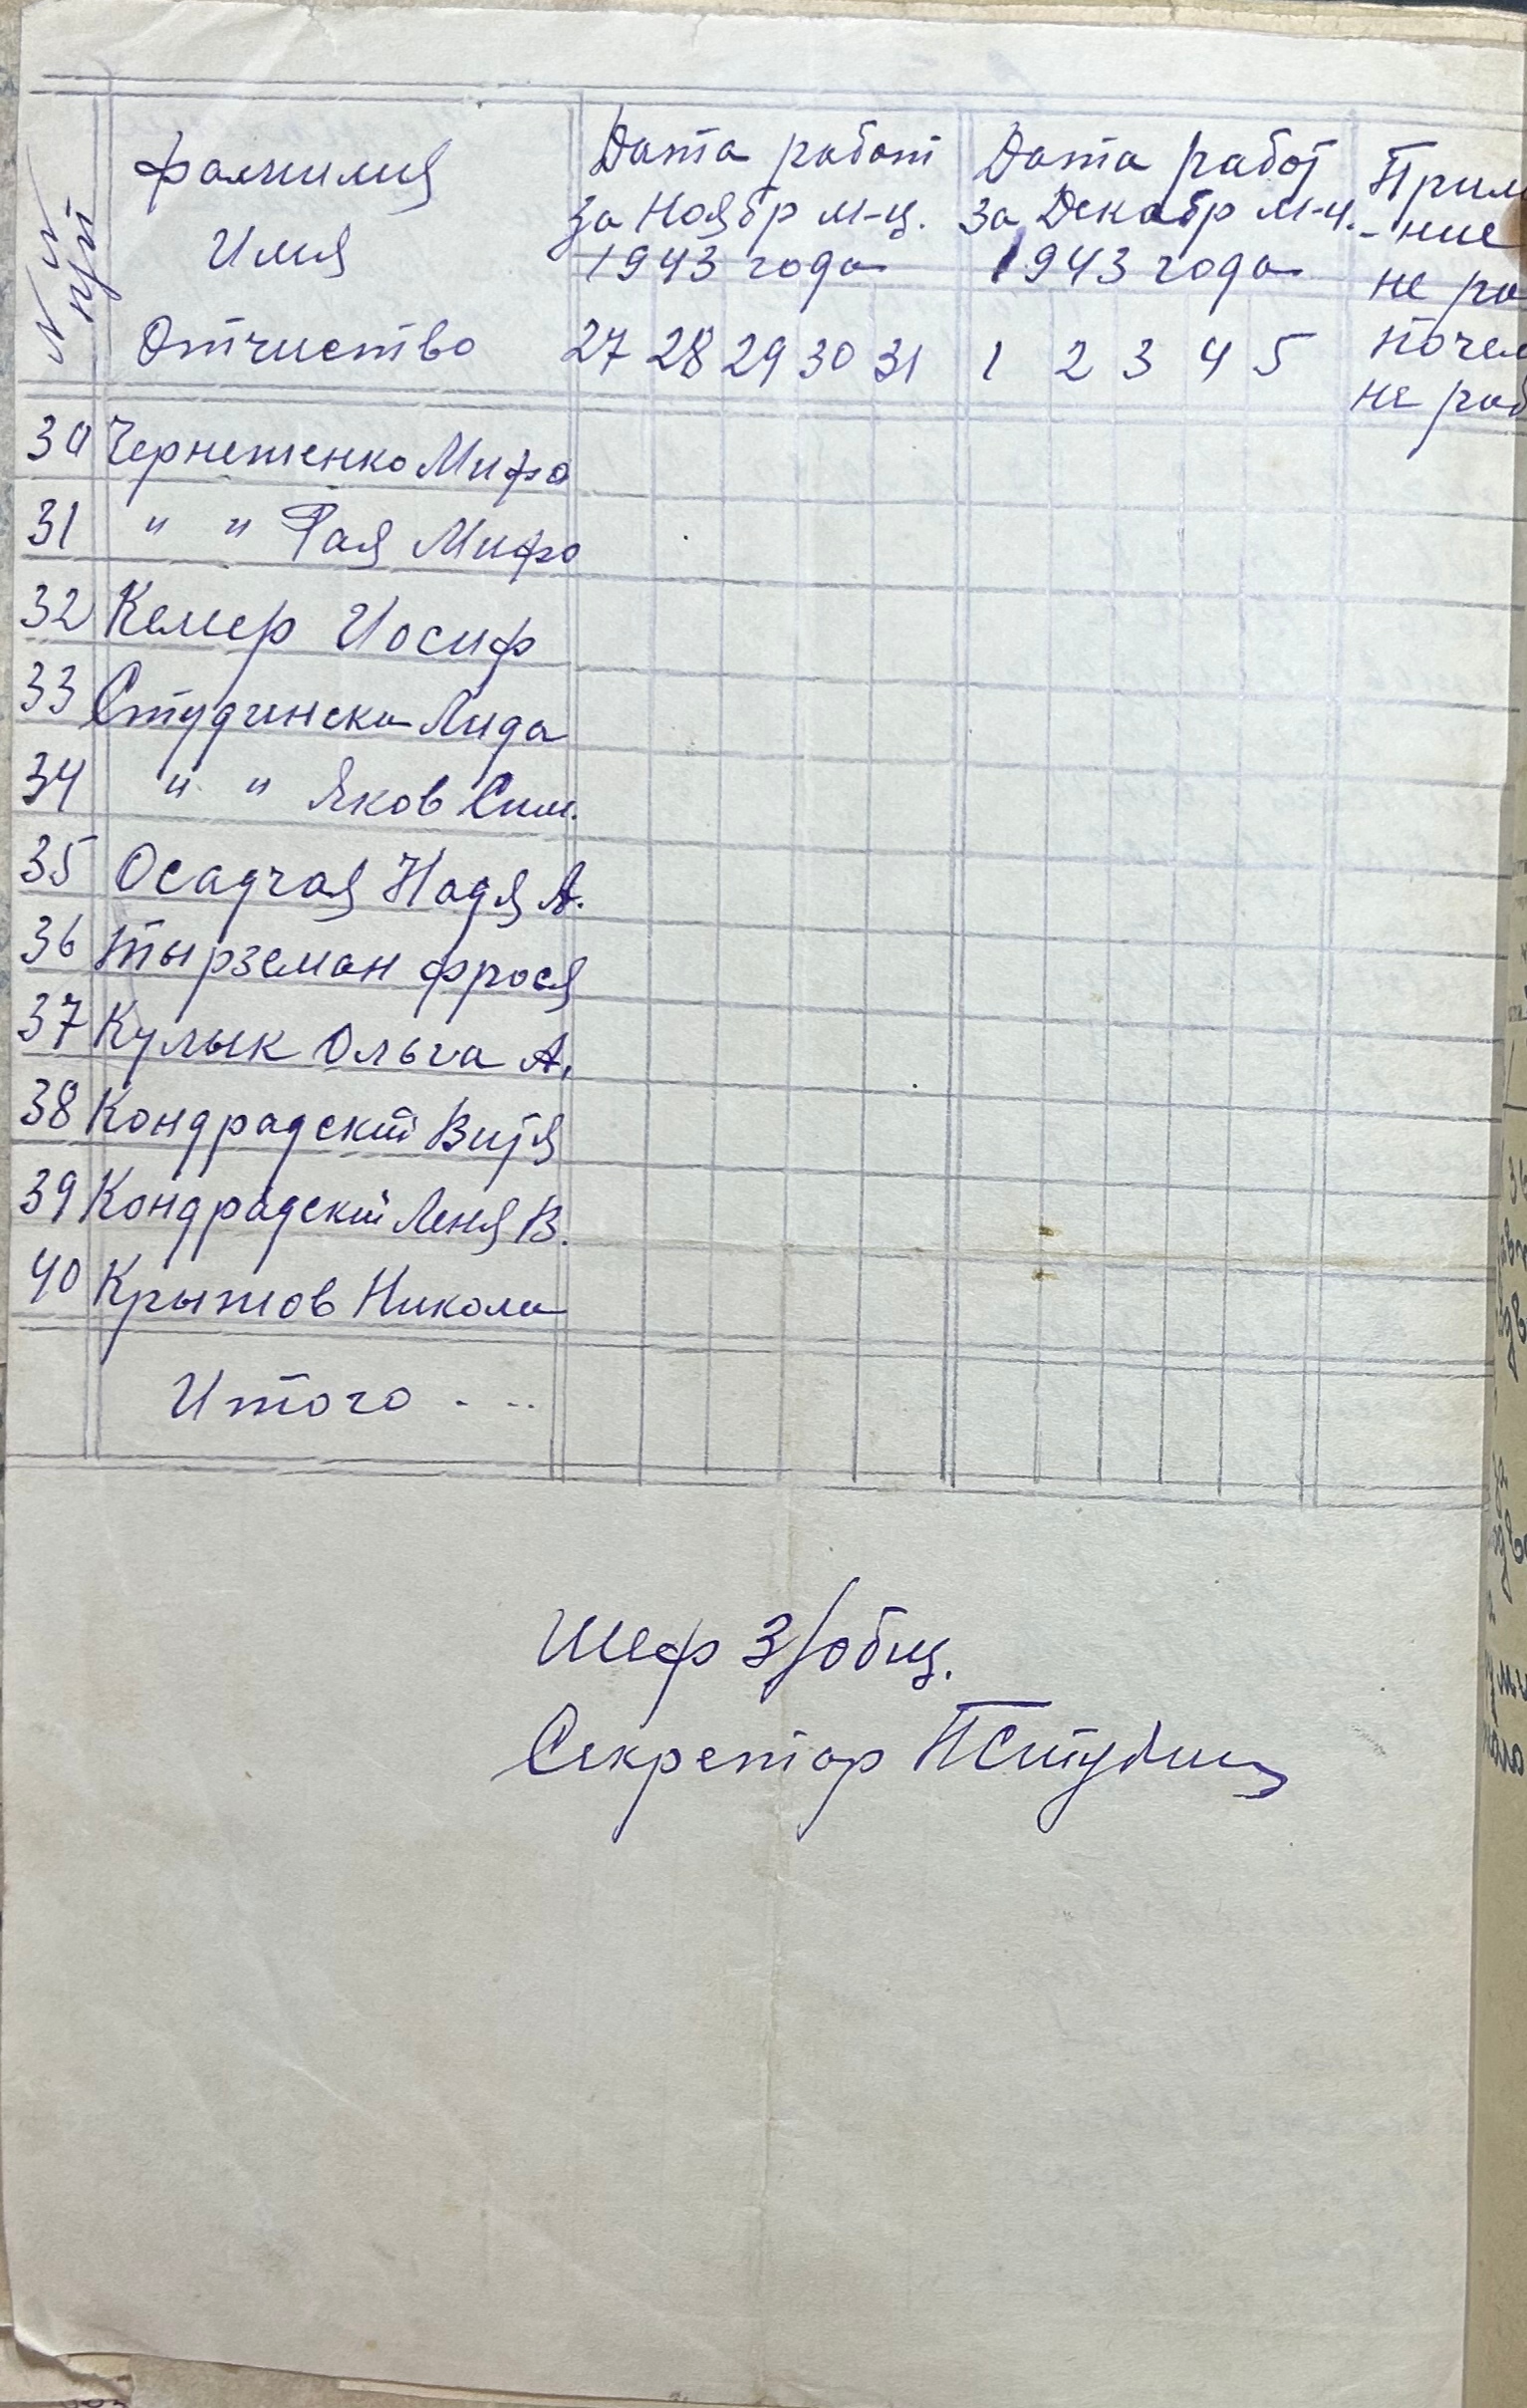 NN п/п
Фамилия
Имя
Отчиство
Дата работ
за Ноябр м-ц.
1943 года
27 28 29 30 31
Дата работ
за Декабр м-ц.
1943 года
1 2 3 4 5
Прим
-ние
не ра
почем
не раб
30 Чернетенко Мифо
31 " " Рая Мифо
32 Келлер Иосиф
33 Студинска Лида
34 " " Яков Сим.
35 Осадчая Надя А.
36 Тырземан Фрося
37 Кулык Ольга А.
38 Кондрадский Витя
39 Кондрадский Леня В.
40 Крытов Никола
Итого - - -
Шеф З/общ.
Секретар